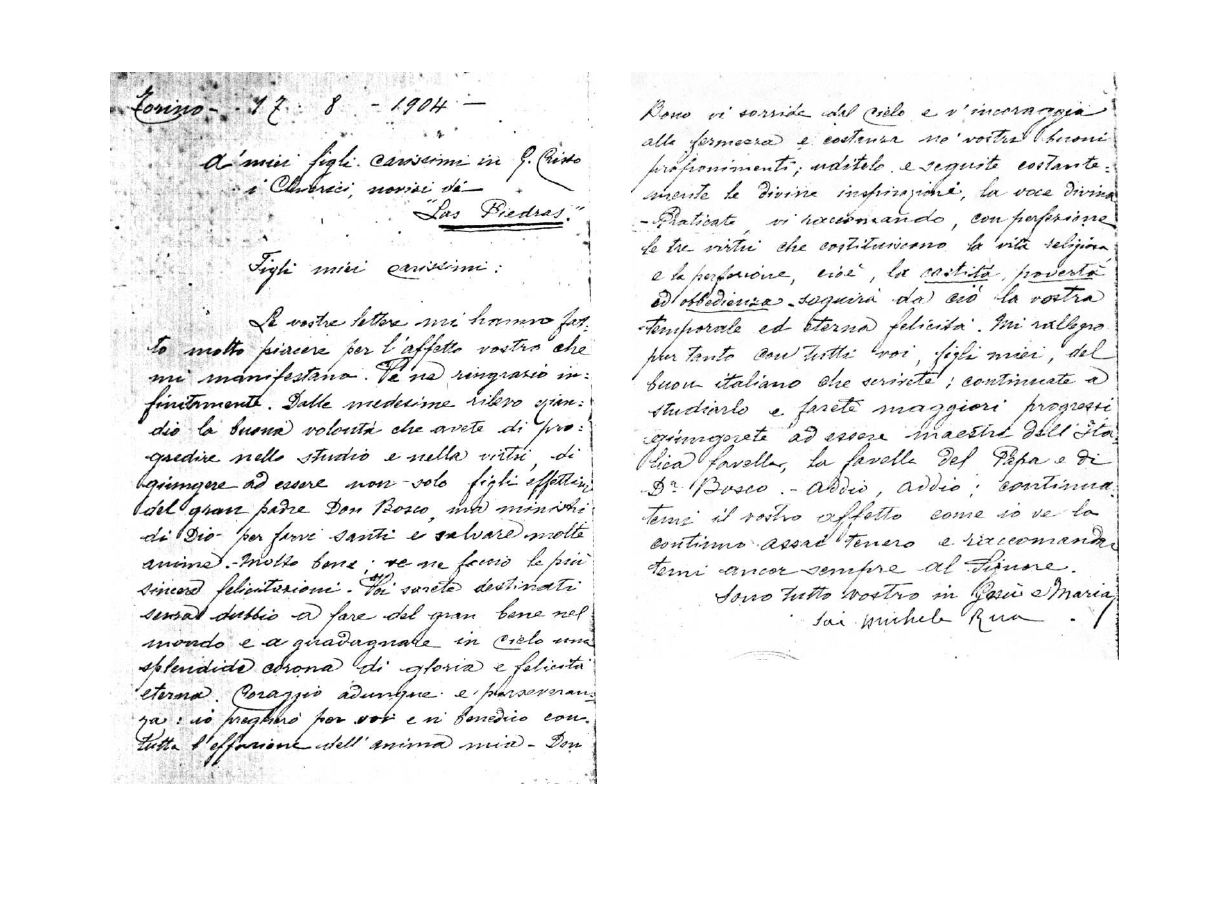 Torino - 17 - 8 - 1904 -
A' miei figli carissimi in G. Cristo
i Chierici, novizi de
"Las Piedras."
Figli miei carissimi:
Le vostre lettere mi hanno fat-
to molto piacere per l'affetto vostro che
mi manifestano. Ve ne ringrazio in=
finitamente. Dalle medesime rilevo ezian=
dio la buona volontà che avete di pro=
gredire nello studio e nella virtù, di
giungere ad essere non solo figli effettivi
del gran padre Don Bosco, ma ministri
di Dio per farvi santi e salvare molte
anime. - Molto bene; ve ne faccio le più
sincere felicitazioni. Voi sarete destinati
senza dubbio a fare del gran bene nel
mondo e a guadagnare in cielo una
splendida corona di gloria e felicità
eterna. Coraggio adunque e perseveran=
za: io pregherò per voi e vi benedico con
tutta l'effusione dell'anima mia - Don
Bosco vi sorride dal cielo e v'incoraggia
alla fermezza e costanza ne' vostri buoni
proponimenti; uditelo e seguite costante=
mente le divine inspirazioni, la voce divina
- Praticate, vi raccomando, con perfezione
le tre virtù che costituiscono la vita religiosa
e la perfezione, cioè, la castità, povertà
ed obbedienza - seguirà da ciò la vostra
temporale ed eterna felicità. Mi rallegro
per tanto con tutti voi, figli miei, del
buon italiano che scrivete; continuate a
studiarlo e farete maggiori progressi
giungerete ad essere maestri dell'Ita
lica favella, la favella del Papa e di
Dn. Bosco. - Addio, addio; continua=
temi il vostro affetto come io ve lo
continuo assai tenero e raccomanda
temi ancor sempre al Signore.
Sono tutto vostro in Gesù e Maria
Sac. Michele Rua